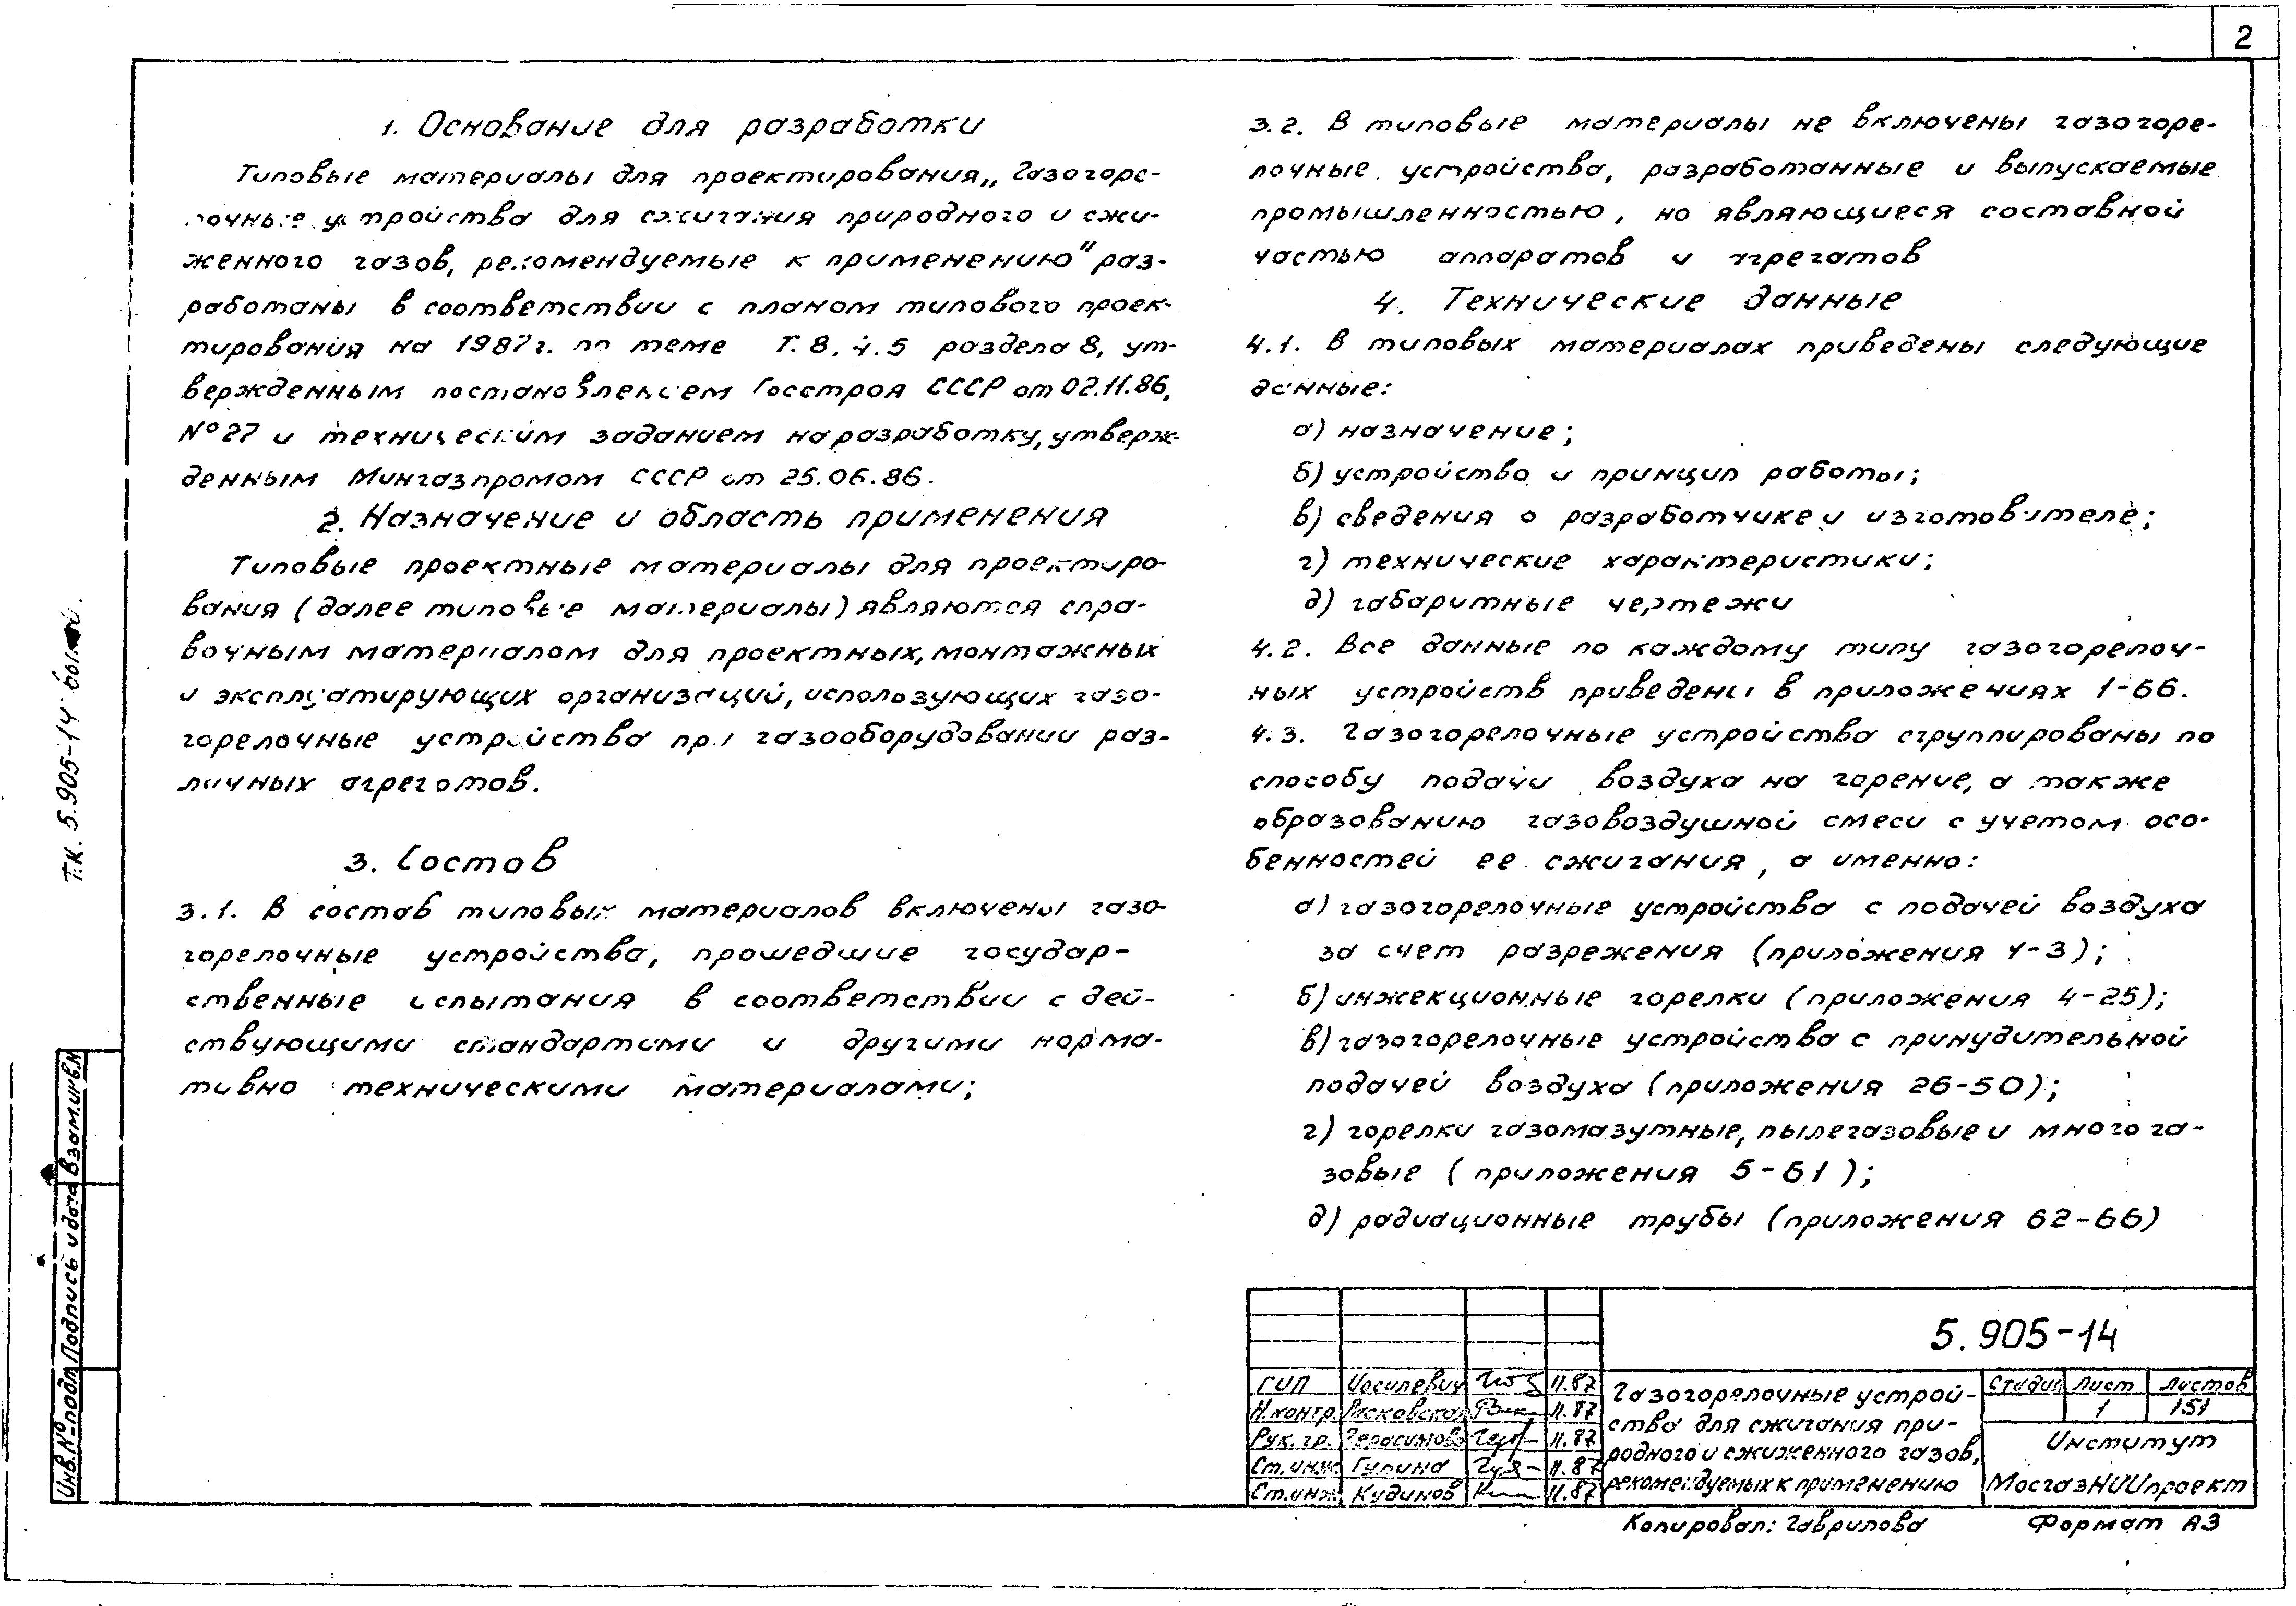 2
1. Основание для разработки
Типовые материалы для проектирования „Газогоре-
лочные устройства для сжигания природного и сжи-
женного газов, рекомендуемые к применению" раз-
работаны в соответствии с планом типового проек-
тирования на 1987г. по теме Т.8.4.5 раздела 8, ут-
вержденным постановлением Госстроя СССР от 02.11.86,
№27 и техническим заданием на разработку, утверж-
денным Мингазпромом СССР от 25.06.86.
2. Назначение и область применения
Типовые проектные материалы для проектиро-
вания (далее типовые материалы) являются спра-
вочным материалом для проектных, монтажных
и эксплуатирующих организаций, использующих газо-
горелочные устройства при газооборудовании раз-
личных агрегатов.
3. Состав
3.1. В состав типовых материалов включены газо-
горелочные устройства, прошедшие государ-
ственные испытания в соответствии с дей-
ствующими стандартами и другими норма-
тивно техническими материалами;
3.2. В типовые материалы не включены газогоре-
лочные устройства, разработанные и выпускаемые
промышленностью, но являющиеся составной
частью аппаратов и агрегатов
4. Технические данные
4.1. В типовых материалах приведены следующие
данные:
а) назначение;
б) устройство и принцип работы;
в) сведения о разработчике и изготовителе;
г) технические характеристики;
д) габаритные чертежи
4.2. Все данные по каждому типу газогорелоч-
ных устройств приведены в приложениях 1-66.
4.3. Газогорелочные устройства сгруппированы по
способу подачи воздуха на горение, а также
образованию газовоздушной смеси с учетом осо-
бенностей ее сжигания, а именно:
а) газогорелочные устройства с подачей воздуха
за счет разрежения (приложения 1-3);
б) инжекционные горелки (приложения 4-25);
в) газогорелочные устройства с принудительной
подачей воздуха (приложения 26-50);
г) горелки газомазутные, пылегазовые и многога-
зовые (приложения 5-61);
д) радиационные трубы (приложения 62-66)
Т.К. 5.905-14
Взам.инв.N
Подпись и дата
Инв.№ подл
5.905-14
ГИП Иосилевич 11.87
Н.контр. Расковская 11.87
Рук.гр. Герасимова 11.87
Ст.инж Гулина 11.87
Ст.инж Кудинов 11.87
Газогорелочные устрой-
ства для сжигания при-
родного и сжиженного газов,
рекомендуемых к применению
Стадия Лист Листов
1 151
Институт
МосгазНИИпроект
Копировал: Гаврилова Формат А3